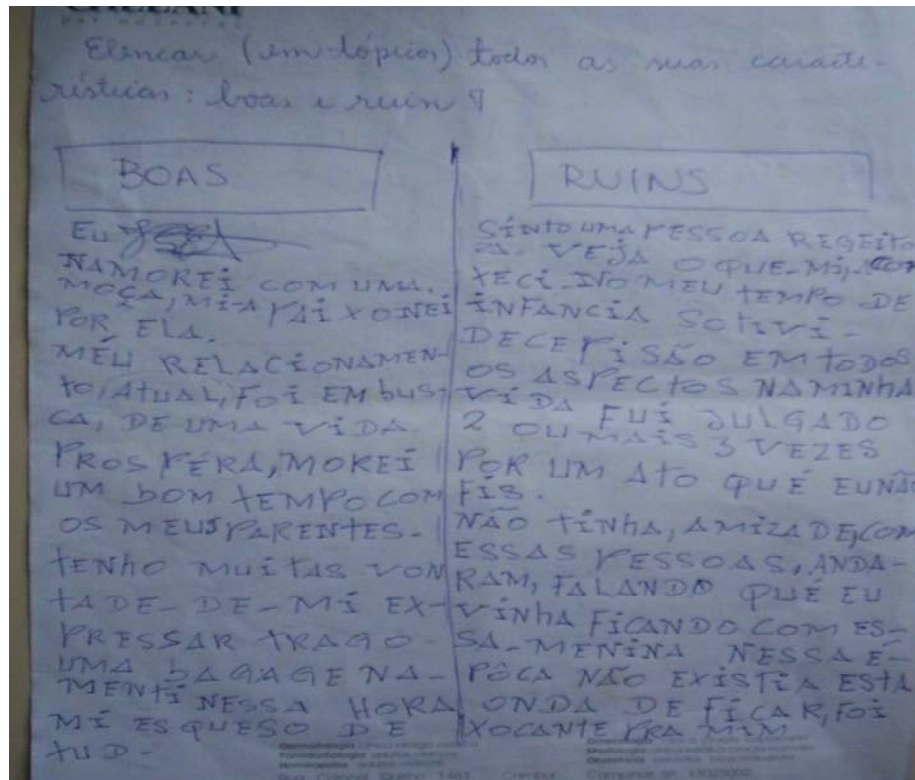 Elencar (em tópicos) todas as suas caracte-
rísticas: boas e ruins
BOAS
EU
NAMOREI COM UMA.
MOÇA, MI-A PAIXONEI
POR ELA.
MEU RELACIONAMEN-
TO, ATUAL, FOI EM BUS-
CA, DE UMA VIDA
PROSPÉRA, MOREI
UM BOM TEMPO COM
OS MEUS PARENTES.
TENHO MUITAS VON
TADE-DE-MI EX-
PRESSAR TRAGO
UMA BAGAGE NA-
MENTI NESSA HORA
MI ESQUESO DE
TUD-
RUINS
SINTO UMA PESSOA REGEITA
DA. VEJA O QUE-MI,-CON
TECI-NO MEU TEMPO DE
INFANCIA SOTIVI-
DECEPISSÃO EM TODOS
OS ASPECTOS NA MINHA
VIDA FUI JULGADO
2 OU MAIS 3 VEZES
POR UM ATO QUE EU NÃO
FIS.
NÃO TINHA, AMIZADE, COM
ESSAS PESSOAS, ANDA-
RAM, FALANDO QUÉ EU
VINHA FICANDO COM ES-
SA-MENINA NESSA É-
PÓCA NÃO EXISTIA ESTA
ONDA DE FICAR, FOI
XOCANTE PRA MIM